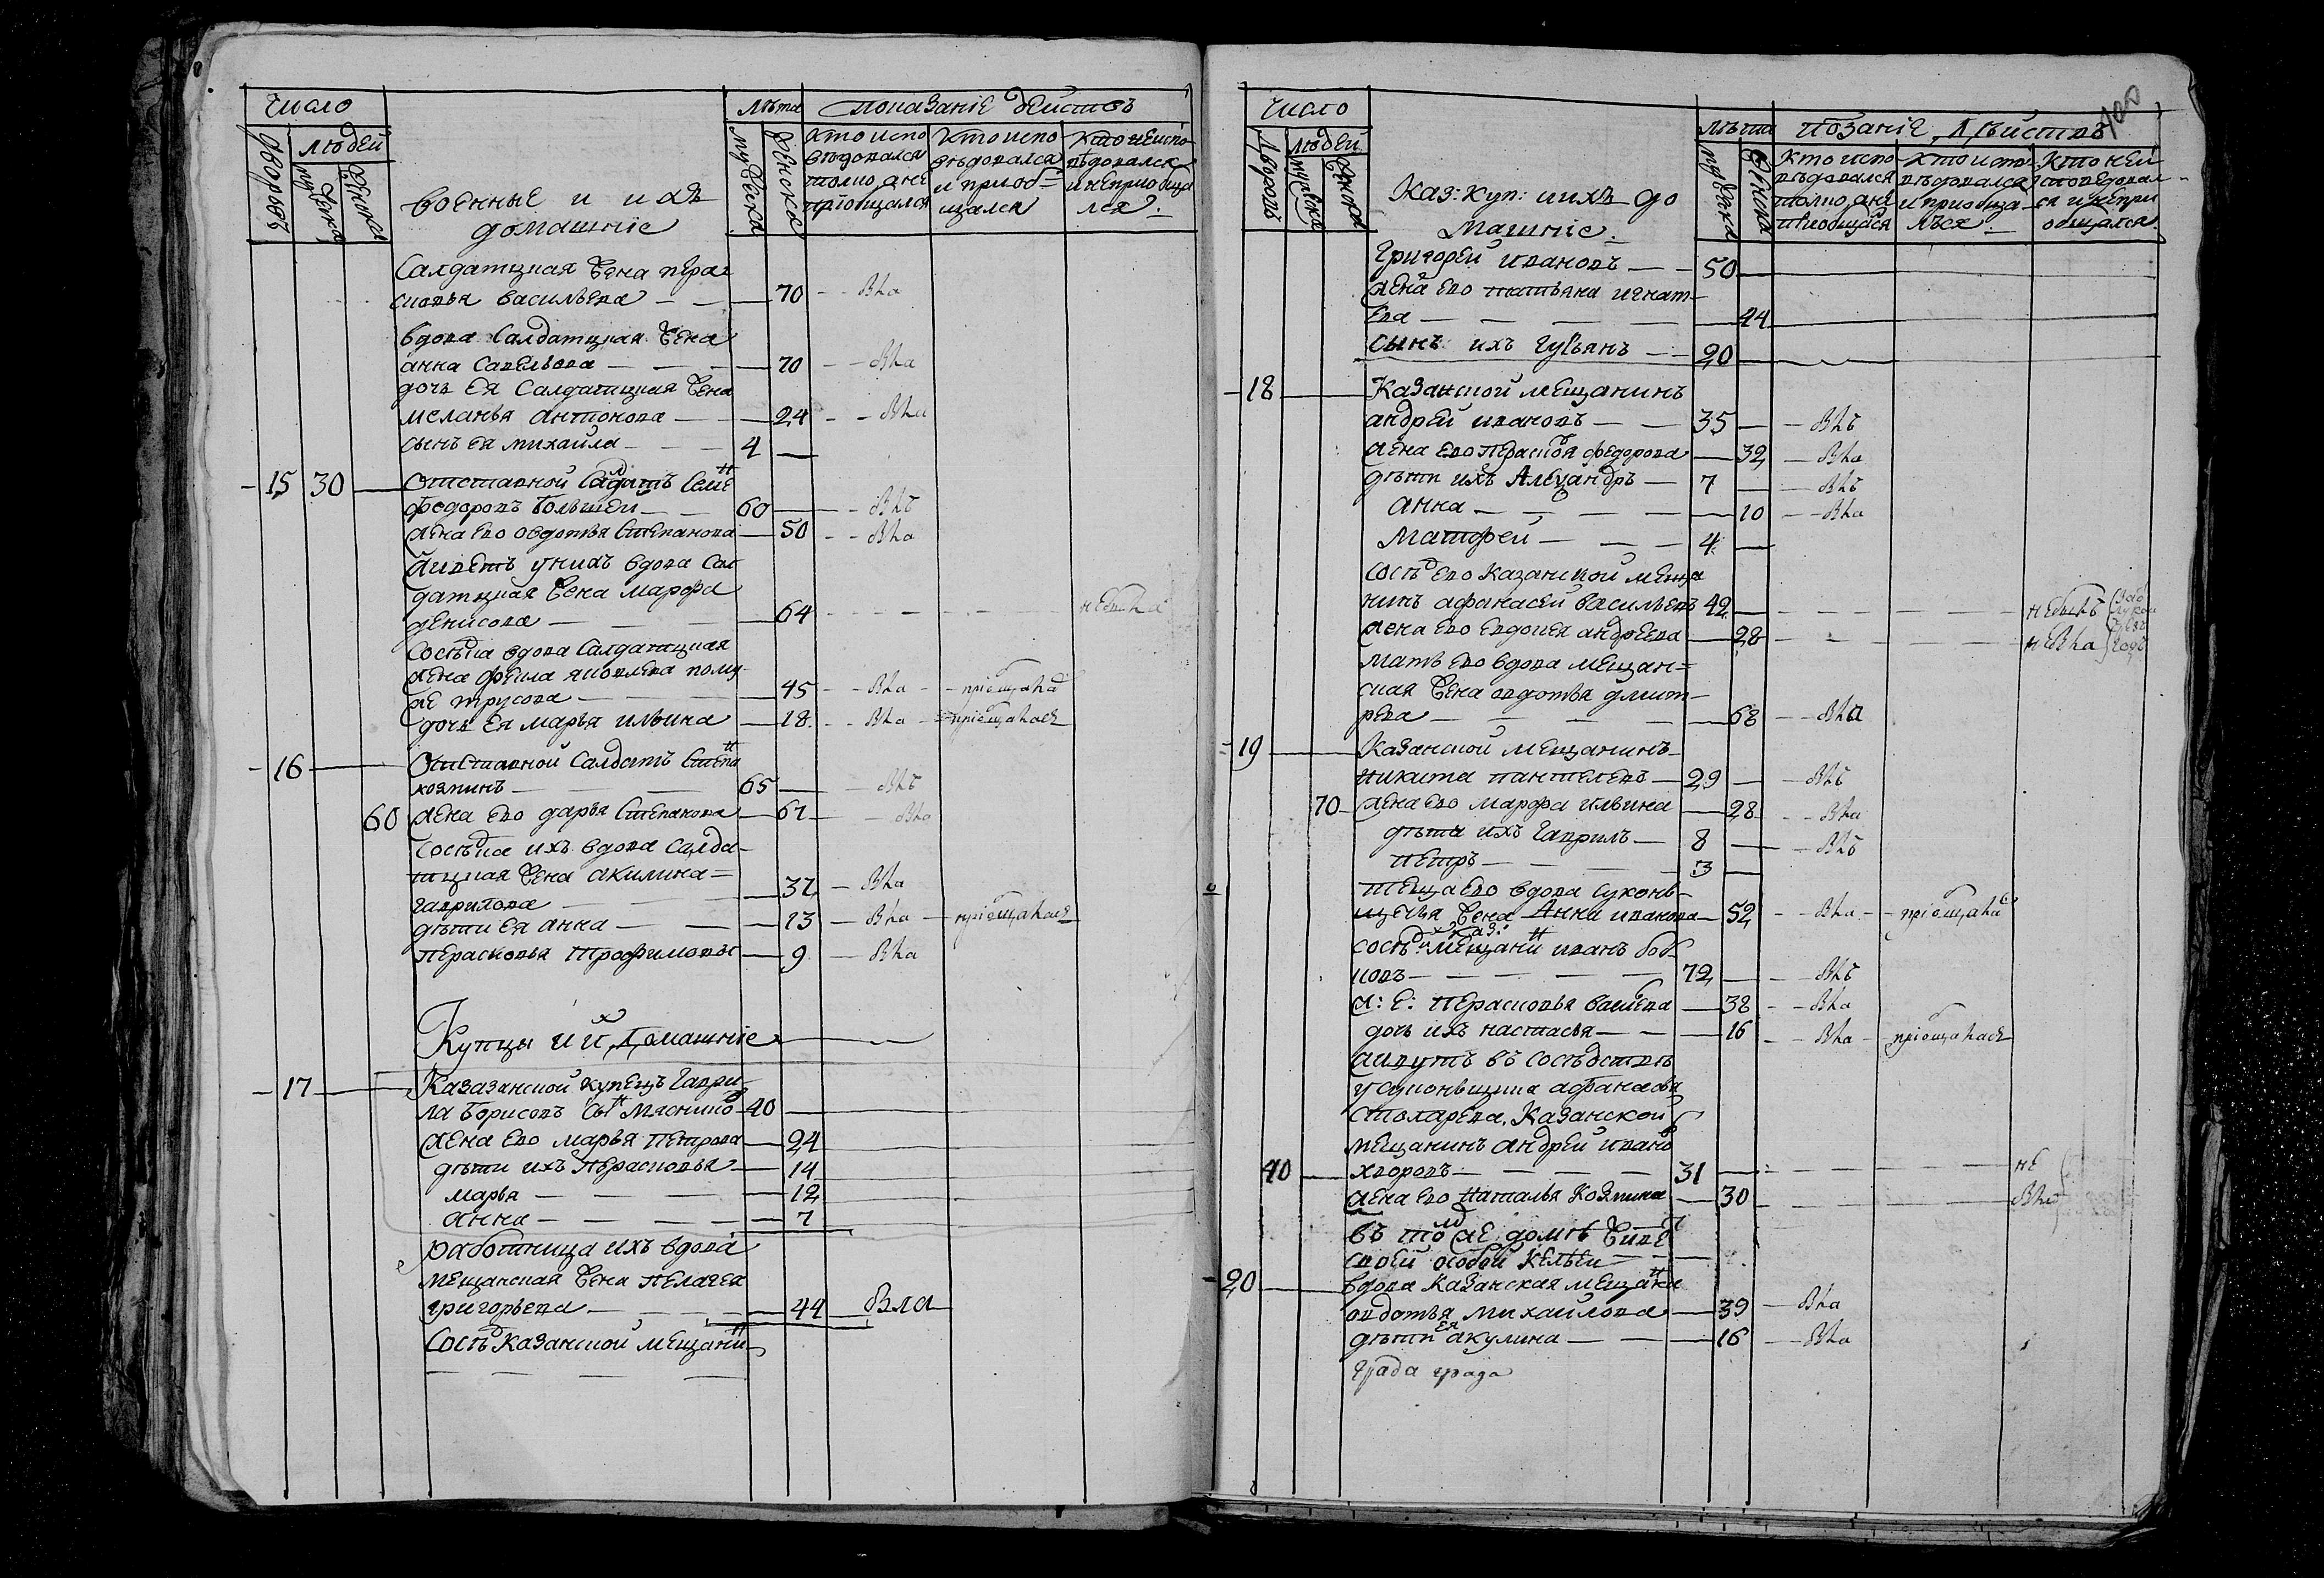 число
лѣта показанїе действъ
дворовъ
людей
мужеска
женска
мужеска
женска
кто испо
вѣдовался
толко а не
прїобщался
кто испо
вѣдовался
и приоб=
щался
кто не испо
вѣдовался
и не приобща
лся
военные и ихъ
домашнїе
Салдатцкая жена пера
сковья васильева — — 70 — вла
вдова салдатцкая жена
анна савельева — — 70 — вла
дочь ея салдатцкая жена
меланья антонова — 24 — вла
сынъ ея михайла — 4 —
15 30 отставной салдатъ семе н
федоровъ большей — 60 — влъ
жена ево овдотья степанова — 50 — вла
живетъ у нихъ вдова сал
датцкая жена марфа
денисова — 64 — не была
сосѣдка вдова салдатцкая
жена фекла яковлева
же трусова — 45 — вла — прїобщала
дочь ея марья ильина — 18 — вла — прїобщалася
16 отставной салдатъ степа н
козминъ — 65 — влъ
60 жена ево дарья степанова — 61 — вла
сосѣдка ихъ вдова салда
тцкая жена акилина =
гаврилова — 32 — вла
дѣти ея анна — 13 — вла — прїобщалася
перасковья трофимовы — 9 — вла
Купцы и их домашнїе
17 Казазанской купецъ гаври
ла борисовъ сы н мяснико в 40
жена ево марья петрова — 24
дѣти ихъ перасковья — 14
марья — 12
анна — 7
работница ихъ вдова
мещанская жена пелагея
григорьева — 44 — вла
сосѣд казанской мещани н
100
число
лѣта показанїе дѣиствъ
дворовъ
людей
мужеска
женска
мужеска
женска
кто испо
вѣдовался
толко а не
прїобщался
кто испо
вѣдовался
и приобща
лъся
кто не и
споведовал
ся и непри
общался
Каз: куп: и ихъ до
машнїе
григорей ивановъ — 50
жена ево татьяна игнат
ева — 44
сынъ ихъ лукьянъ — 20
18 Казанской мещанинъ
андрей ивановъ — 35 — влъ
жена ево перасковья федорова — 32 — вла
дѣти ихъ алеѯандръ — 7 — влъ
анна — 10 — вла
матфей — 4 —
сосѣд ево казанской меща
нинъ афанасей васильевъ 42 — не былъ
жена ево евдокея андреева — 28 — не вла
мать ево вдова мещан=
ская жена овдотья дмит
рева — 68 — вла
19 Казанской мещанинъ
никита пантелеевъ — 29 — влъ
70 жена ево марфа ильина — 28 — вла
дѣти ихъ гаврилъ — 8 — влъ
петръ — 3
теща ево вдова суконь
щичья жена анна иванова — 52 — вла — прїобщала
каз:
сосѣд ихъ мещани н иванъ боб
ковъ — 72 — влъ
ж: е: перасковья васильева — 38 — вла
дочь ихъ настасья — 16 — вла — прїобщалася
живутъ въ сосѣдствѣ
у суконьщика афанасья
столярева казанской
мещанинъ андрей ивано в
40 хворовъ — 31 — не
жена ево наталья козмина — 30 — вла
въ то м же домѣ живе т
своей особой кельей
20 вдова казанская меща н ка
овдотья михайлова — 39 — вла
дѣти ея акулина — 16 — вла
града града